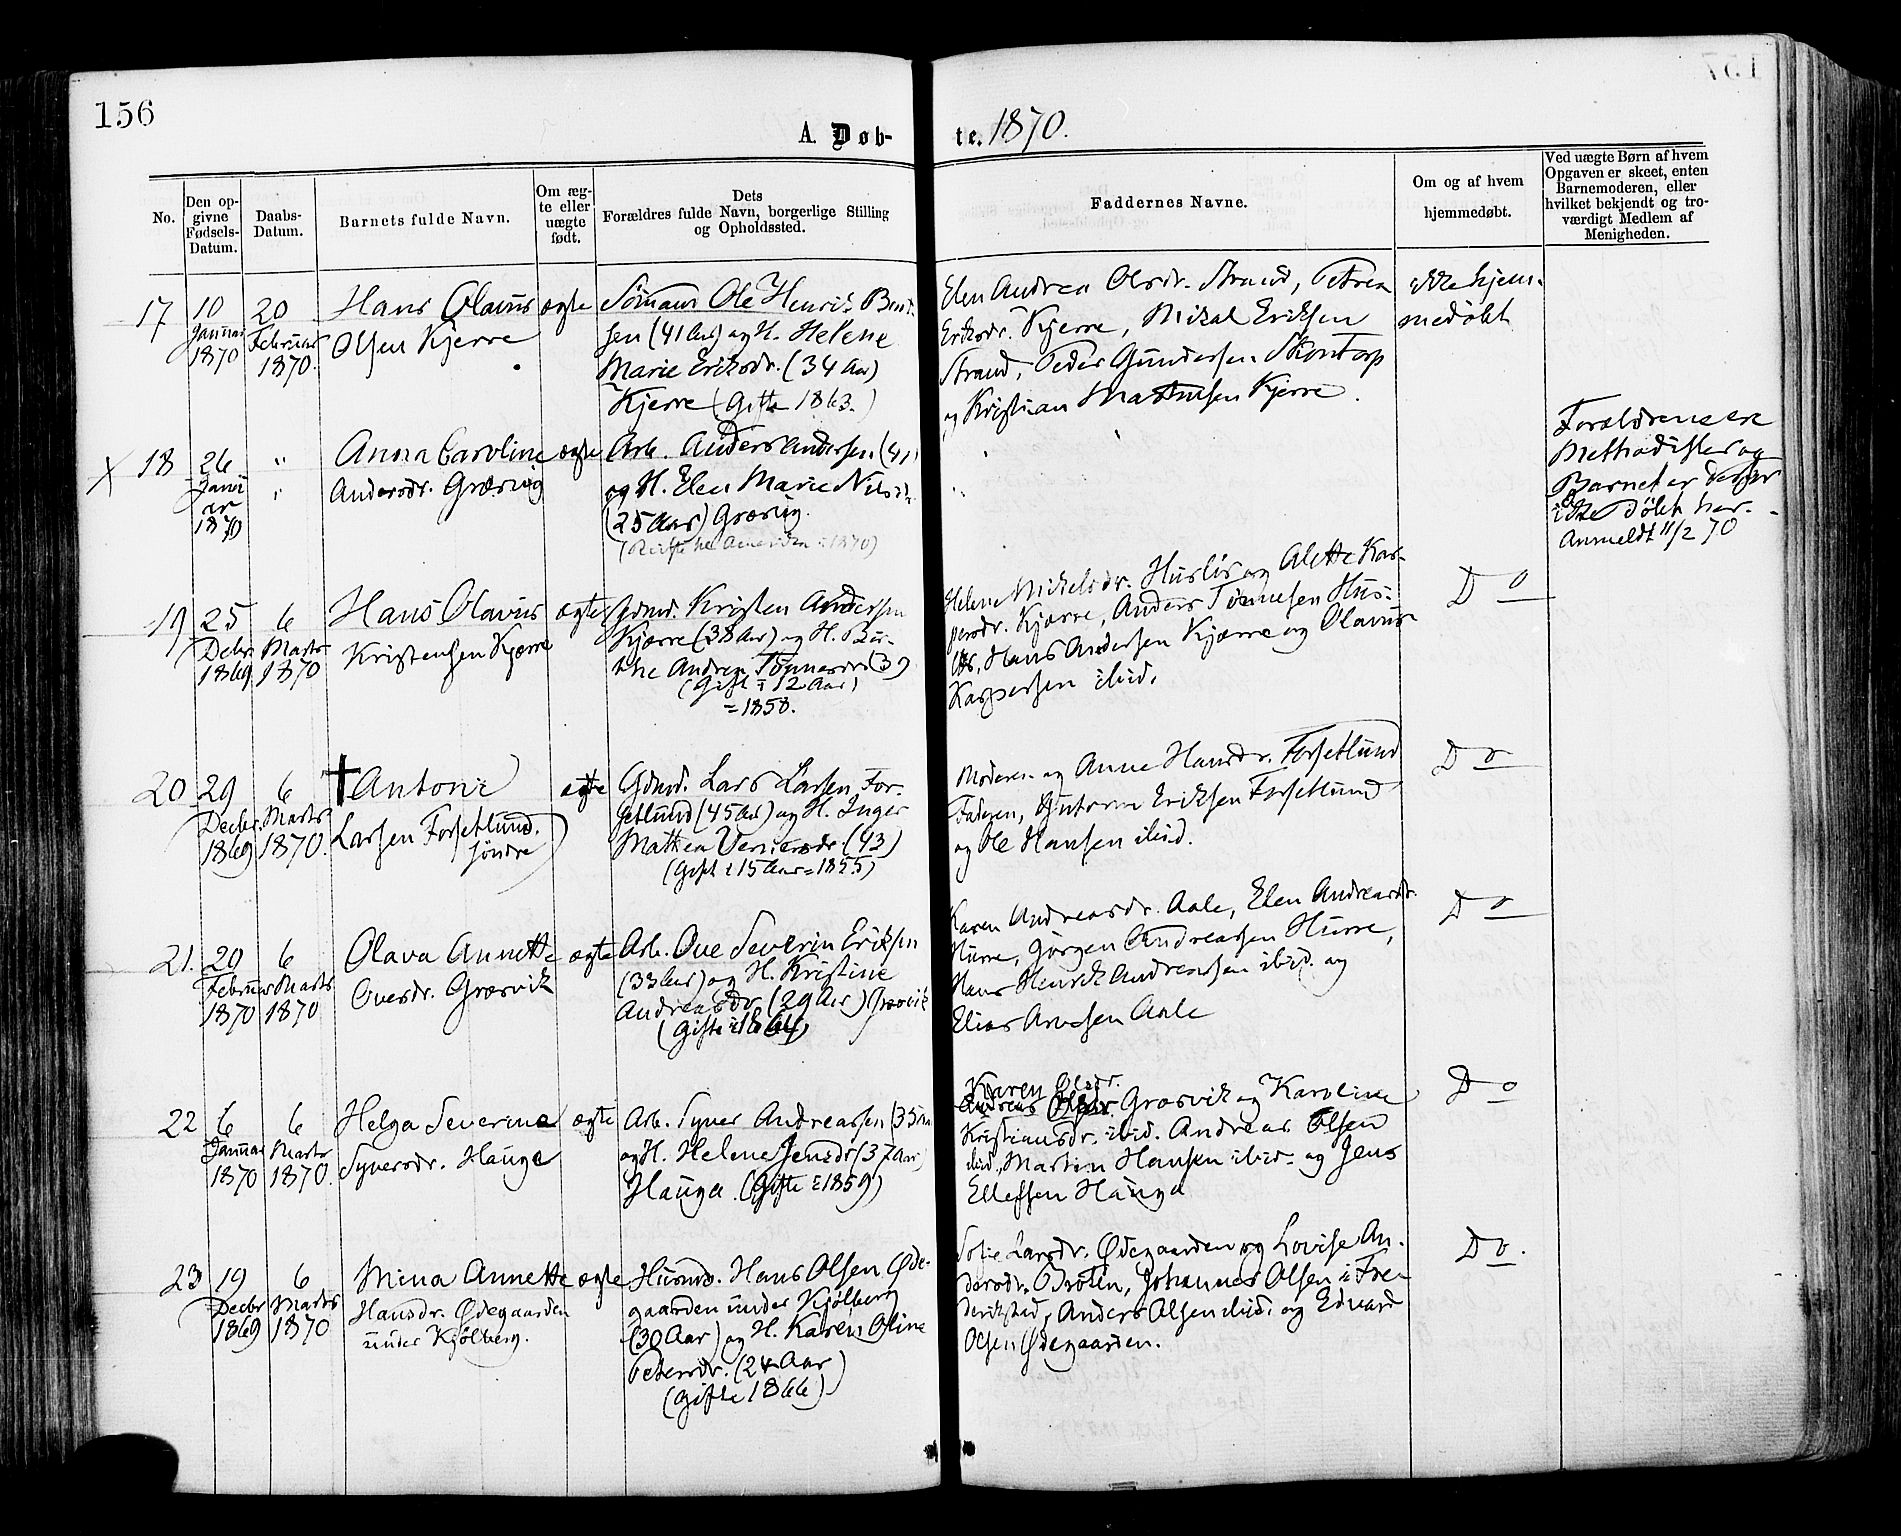 156
A. Døb-
te. 1870.
No.
Den op-
givne
Fødsels-
Datum.
Daabs-
Datum.
Barnets fulde Navn.
Om æg-
te eller
uægte
født.
Dets
Forældres fulde Navn, borgerlige Stilling
og Opholdssted.
Faddernes Navne.
Om og af hvem
hjemmedøbt.
Ved uægte Børn af hvem
Opgaven er skeet, enten
Barnemoderen, eller
hvilket bekjendt og tro-
værdigt Medlem af
Menigheden.
17
10
Januar
1870
20
Februar
1870.
Hans Olavus
Olsen Kjerre
ægte
Sømand Ole Henrik Bent-
sen (41 Aar) og H. Helene
Marie Eriksdr. (34 Aar)
Kjerre (Gifte 1863.)
Elen Andrea Olsdr. Strand, Petrea
Eriksdr. Kjerre, Mikal Eriksen
Strand, Peder Gundersen Skontorp
og Kristian Mathisen Kjerre.
ikke hjem-
medøbt
X 18
26
Janu
ar
1870
"
"
Anna Caroline
Andersdr. Græsvig
ægte
Arb. Anders Andersen (41)
og H. Elen Marie Nilsdr.
(25 Aar) Græsvig.
Amerika i 1870)
Forældrene ere
Methodister og
Barnet er derfor
ikke døbt her.
Anmeldt 11/2 70
19
25
Decbr
1869
6
Marts
1870
Hans Olavus
Kristensen Kjærre
ægte
Gdmd. Kristen Andersen
Kjærre (38 Aar) og H. Ber-
the Andrea Tønnesdr (39
(Gift i 12 Aar)
= 1858.
Helene Nickelsdr. Husløs og Alette Kas-
persdr. Kjærre, Anders Tønnesen Hus-
løs, Hans Andersen Kjærre og Olavus
Kaspersen ibid.
Do
20
29
Decbr.
1869
6
Marts
1870.
† Antoni
Larsen Forsetlund.
søndre
ægte
Gdmd. Lars Larsen For-
setlund (45 Aar) og H. Inger
Mathea Vernersdr (43)
(Gift i 15 Aar = 1855)
Moderen og Anne Hansdr. Forsetlund
Faderen, Guttorm Eriksen Forsetlund
og Ole Hansen ibid.
Do
21.
20
Februar
1870
6
Marts
1870
Olava Annette
Ovesdr. Græsvik
ægte
Arb. Ove Severin Eriksen
(33 Aar) og H. Kristine
Andreasdr. (29 Aar) Græsvik
(Gifte i 1864)
Karen Andreasdr. Aale, Elen Andreasdr.
Hurre, Jørgen Andreassen Hurre,
Hans Henrik Andreassen ibid. og
Elias Arnesen Aale
Do
22
6
Januar
1870
6
Marts
1870.
Helga Severine
Syversdr. Hauge
ægte
Arb. Syver Andreassen (35 Aar
og H. Helene Jensdr (37 Aar)
Hauga. (Gifte i 1859)
Karen Olsdr.
Græsvik og Karoline
Kristiansdr. ibid. Andreas Olsen
ibid., Martin Hansen ibid. og Jens
Ellefsen Hauga
Do
23
19
Decbr
1869
6
Marts
1870
Mina Annette
Hansdr. Ødegaarden
under Kjølberg.
ægte
Husmd. Hans Olsen Øde-
gaarden under Kjølberg
(30 Aar) og H. Karen Oline
Petersdr. (24 Aar)
(Gifte 1866)
Sofie Larsdr. Ødegaarden og Lovise An-
dersdr. Braten, Johannes Olsen i Fre-
derikstad, Anders Olsen ibid. og Edvard
Olsen Ødegaarden.
Do.
157